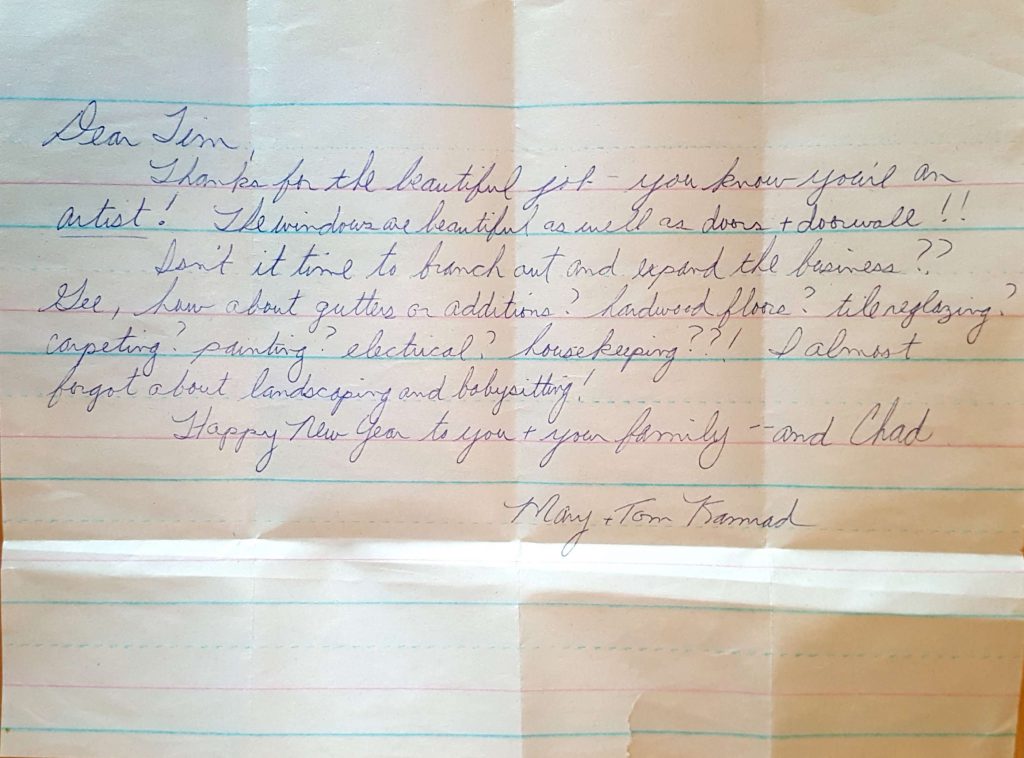 Dear Tim,
Thanks for the beautiful job - you know you're an
artist! The windows are beautiful as well as doors + doorwall!!
Isn't it time to branch out and expand the business??
Gee, how about gutters or additions? hardwood floors? tile reglazing?
carpeting? painting? electrical? housekeeping??! I almost
forgot about landscaping and babysitting!
Happy New Year to you + your family -- and Chad
Mary + Tom